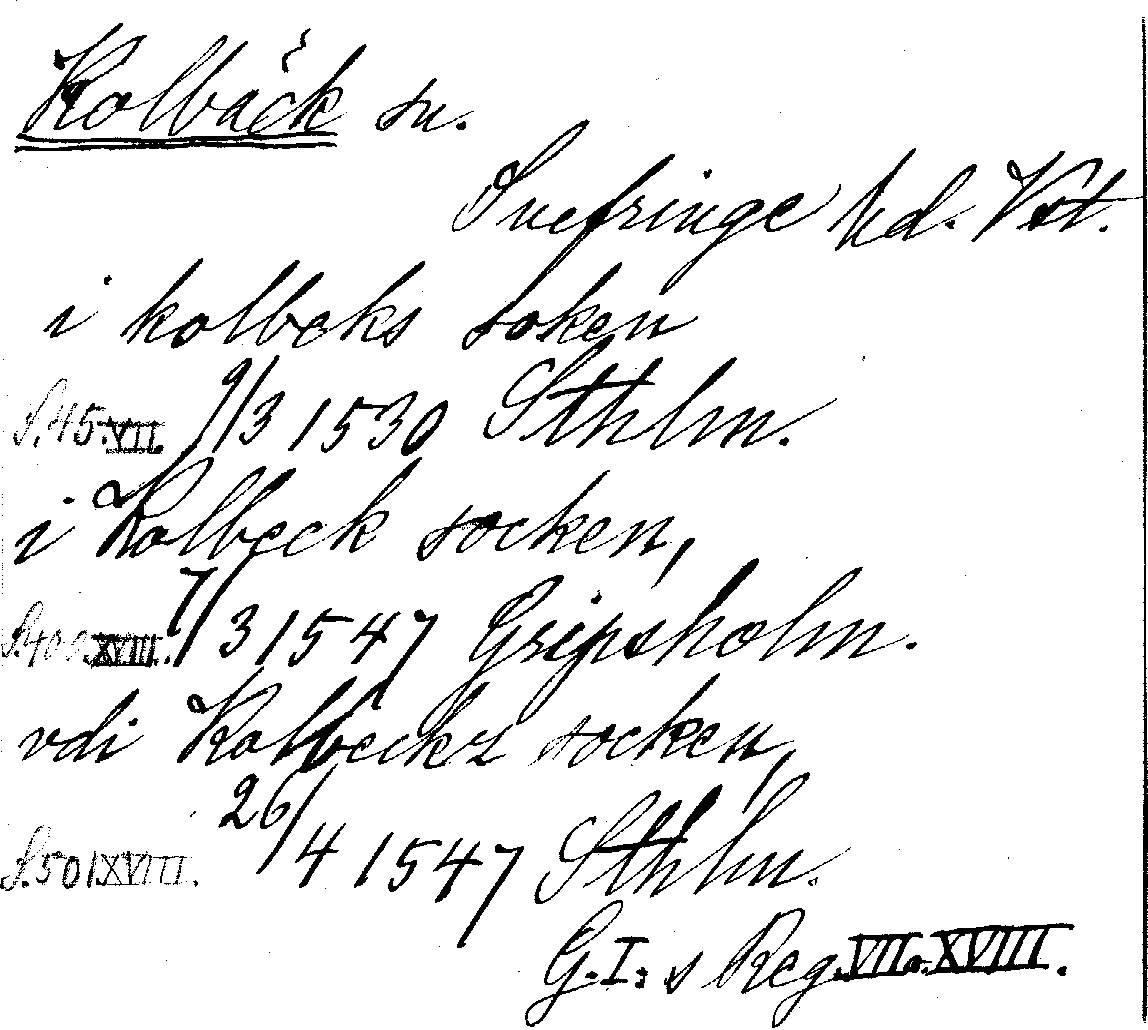 Kolbäck sn.
Snefringe hd. Vst.
i kolbeks soken
S. 45. VII. 9/3 1530 Sthlm.
i Kolbeck socken,
S. 400. XVIII. 7/3 1547 Gripsholm.
vdi Kolbeckz socken,
S. 501 XVIII. 26/4 1547 Sthlm.
G. I:s Reg. VII o. XVIII.